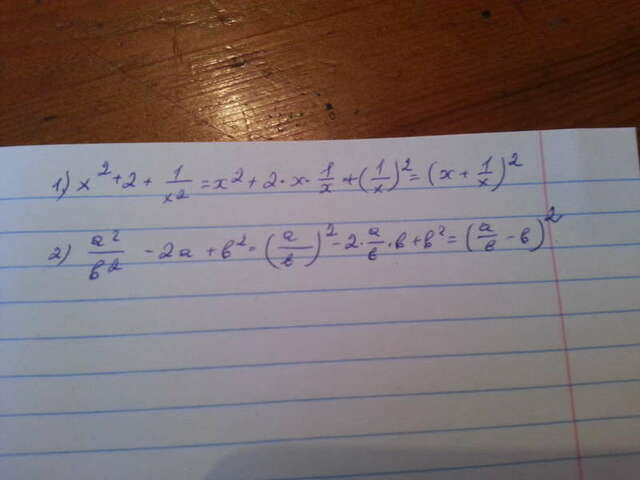 1) x² + 2 + 1/x² = x² + 2 · x · 1/x + (1/x)² = (x + 1/x)²
2) a²/b² - 2a + b² = (a/b)² - 2 · a/b · b + b² = (a/b - b)²